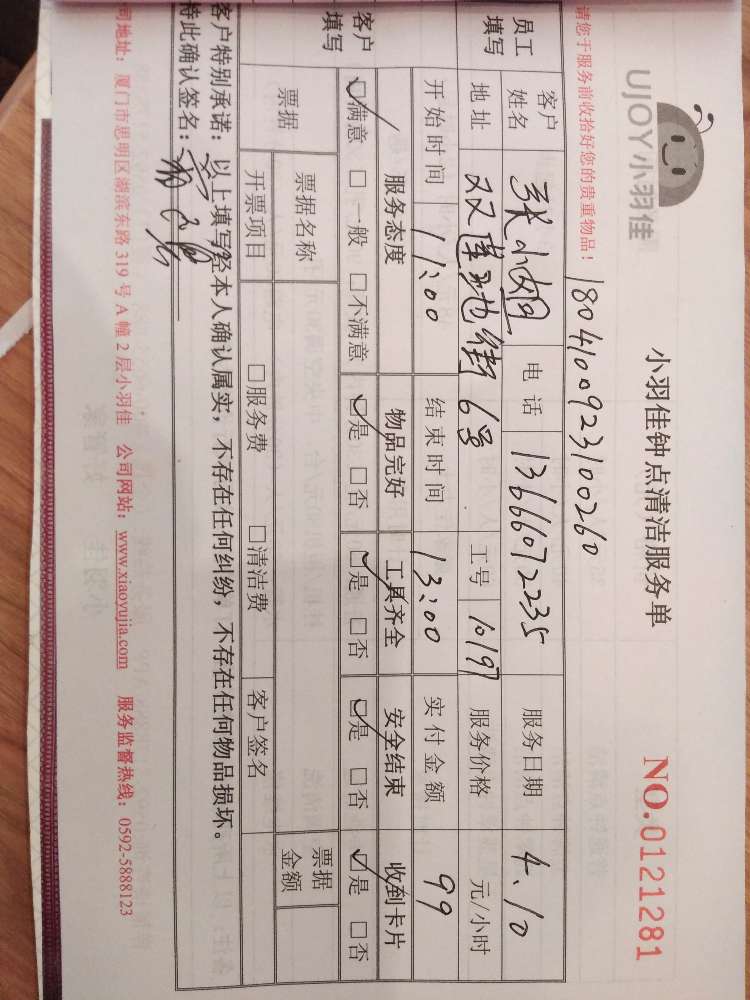 UJOY小羽佳
小羽佳钟点清洁服务单
NO.0121281
请您于服务前收拾好您的贵重物品!
1804100923100260
员工填写 客户姓名 张小姐 电话 13666072235 服务日期 4.10
地址 双莲池街6号 工号 10197 服务价格 元/小时
开始时间 11:00 结束时间 13:00 实付金额 99
客户填写 服务态度 物品完好 工具齐全 安全结束 收到卡片
☑满意 □一般 □不满意 ☑是 □否 ☑是 □否 ☑是 □否 ☑是 □否
票据 票据名称 票据金额
开票项目 □服务费 □清洁费 客户签名
客户特别承诺:以上填写经本人确认属实,不存在任何纠纷,不存在任何物品损坏。
特此确认签名:
司地址:厦门市思明区湖滨东路319号A幢2层小羽佳 公司网站:www.xiaoyujia.com 服务监督热线:0592-5888123